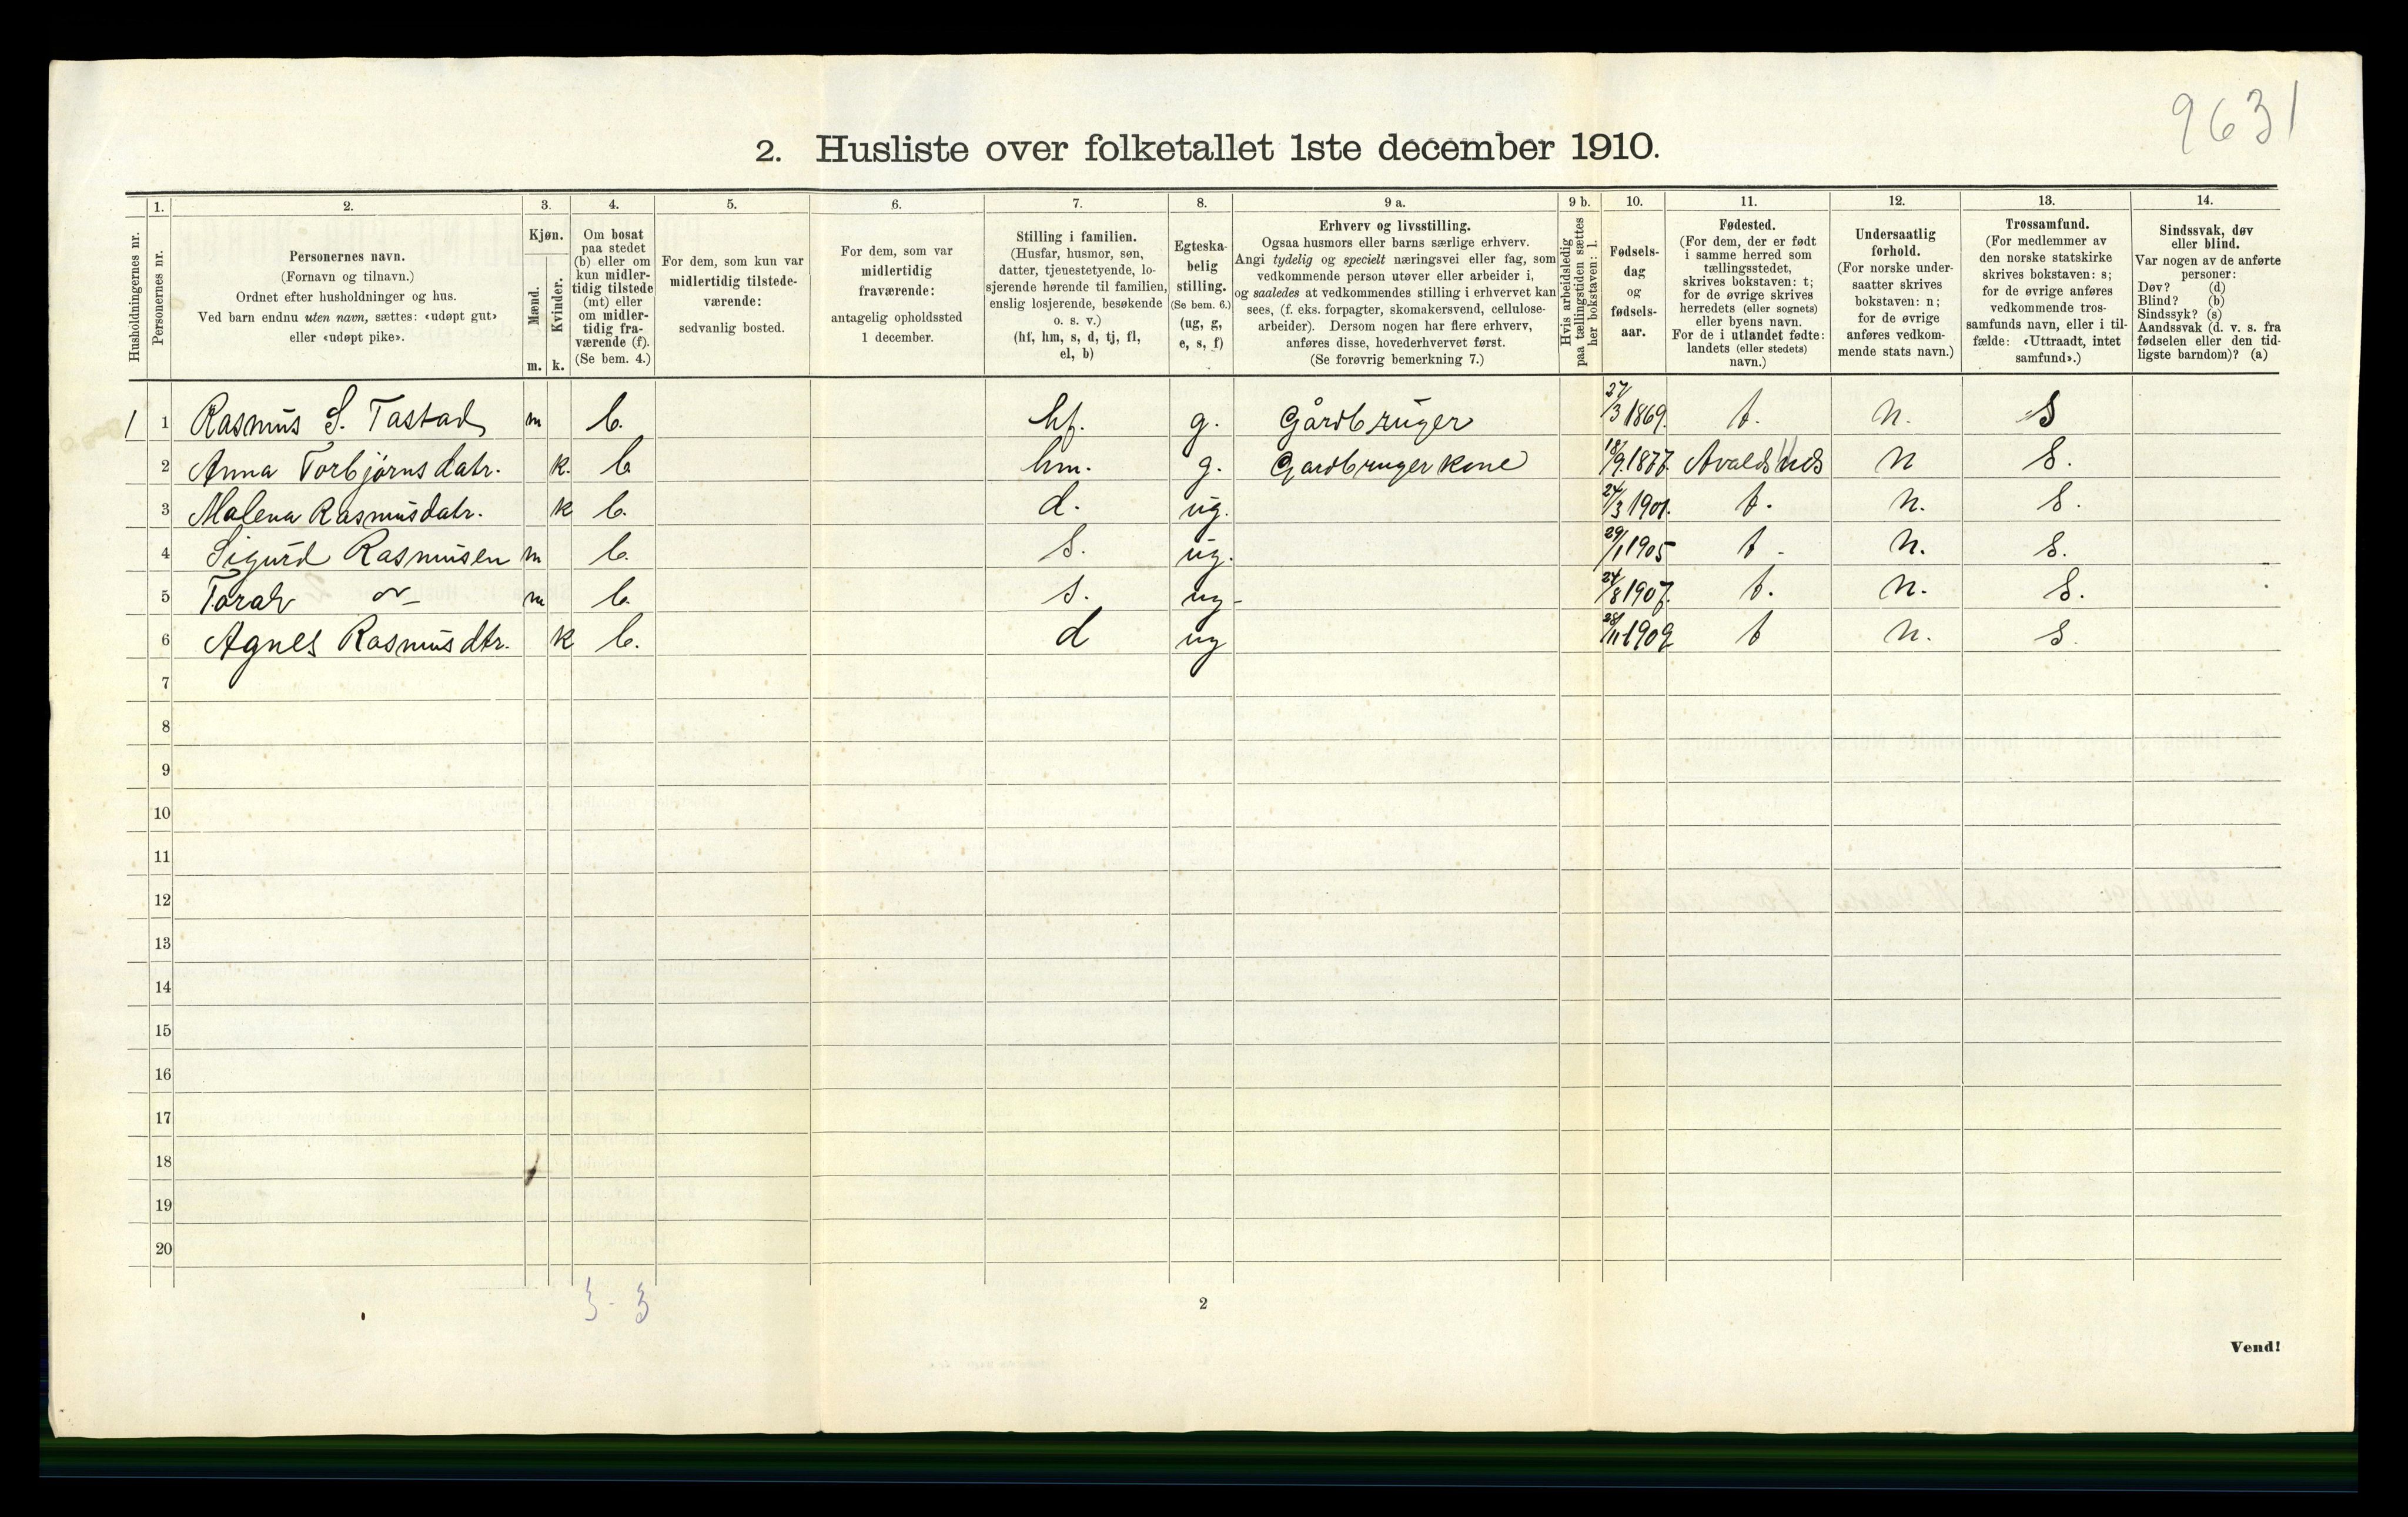 9631
2. Husliste over folketallet 1ste december 1910.
Husholdningernes nr.
1.
Personernes nr.
2.
Personernes navn.
(Fornavn og tilnavn.)
Ordnet efter husholdninger og hus.
Ved barn endnu uten navn, sættes: «udøpt gut»
eller «udøpt pike».
3.
Kjøn.
Mænd.
Kvinder.
m. k.
4.
Om bosat
paa stedet
(b) eller om
kun midler-
tidig tilstede
(mt) eller
om midler-
tidig fra-
værende (f).
(Se bem. 4.)
5.
For dem, som kun var
midlertidig tilstede-
værende:
sedvanlig bosted.
6.
For dem, som var
midlertidig
fraværende:
antagelig opholdssted
1 december.
7.
Stilling i familien.
(Husfar, husmor, søn,
datter, tjenestetyende, lo-
sjerende hørende til familien,
enslig losjerende, besøkende
o. s. v.)
(hf, hm, s, d, tj, fl,
el, b)
8.
Egteska-
belig
stilling.
(Se bem. 6.)
(ug, g,
e, s, f)
9 a.
Erhverv og livsstilling.
Ogsaa husmors eller barns særlige erhverv.
Angi tydelig og specielt næringsvei eller fag, som
vedkommende person utøver eller arbeider i,
og saaledes at vedkommendes stilling i erhvervet kan
sees, (f. eks. forpagter, skomakersvend, cellulose-
arbeider). Dersom nogen har flere erhverv,
anføres disse, hovederhvervet først.
(Se forøvrig bemerkning 7.)
9 b.
Hvis arbeidsledig
paa tællingstiden sættes
her bokstaven: l.
10.
Fødsels-
dag
og
fødsels-
aar.
11.
Fødested.
(For dem, der er født
i samme herred som
tællingsstedet,
skrives bokstaven: t;
for de øvrige skrives
herredets (eller sognets)
eller byens navn.
For de i utlandet fødte:
landets (eller stedets)
navn.)
12.
Undersaatlig
forhold.
(For norske under-
saatter skrives
bokstaven: n;
for de øvrige
anføres vedkom-
mende stats navn.)
13.
Trossamfund.
(For medlemmer av
den norske statskirke
skrives bokstaven: s;
for de øvrige anføres
vedkommende tros-
samfunds navn, eller i til-
fælde: «Uttraadt, intet
samfund».)
14.
Sindssvak, døv
eller blind.
Var nogen av de anførte
personer:
Døv? (d)
Blind? (b)
Sindssyk? (s)
Aandssvak (d. v. s. fra
fødselen eller den tid-
ligste barndom)? (a)
1 1 Rasmus S. Tastad m b. hf. g. Gårdbruger 27/3 1869. t. n. S
2 Anna Torbjørnsdatr. k. b hm. g. Gardbruger kone 18/9 1877. Avaldsnes n S.
3 Malena Rasmusdatr. k b. d. ug. 24/3 1901. t. n. S.
4 Sigurd Rasmusen m b. s. ug. 29/1 1905 t. n. S.
5 m b. s. ug 24/8 1907. t. n. S.
6 Agnes Rasmusdtr. k b. d ug 28/11 1909 t n. S.
7
8
9
10
11
12
13
14
15
16
17
18
19
20
3 - 3
2
Vend!